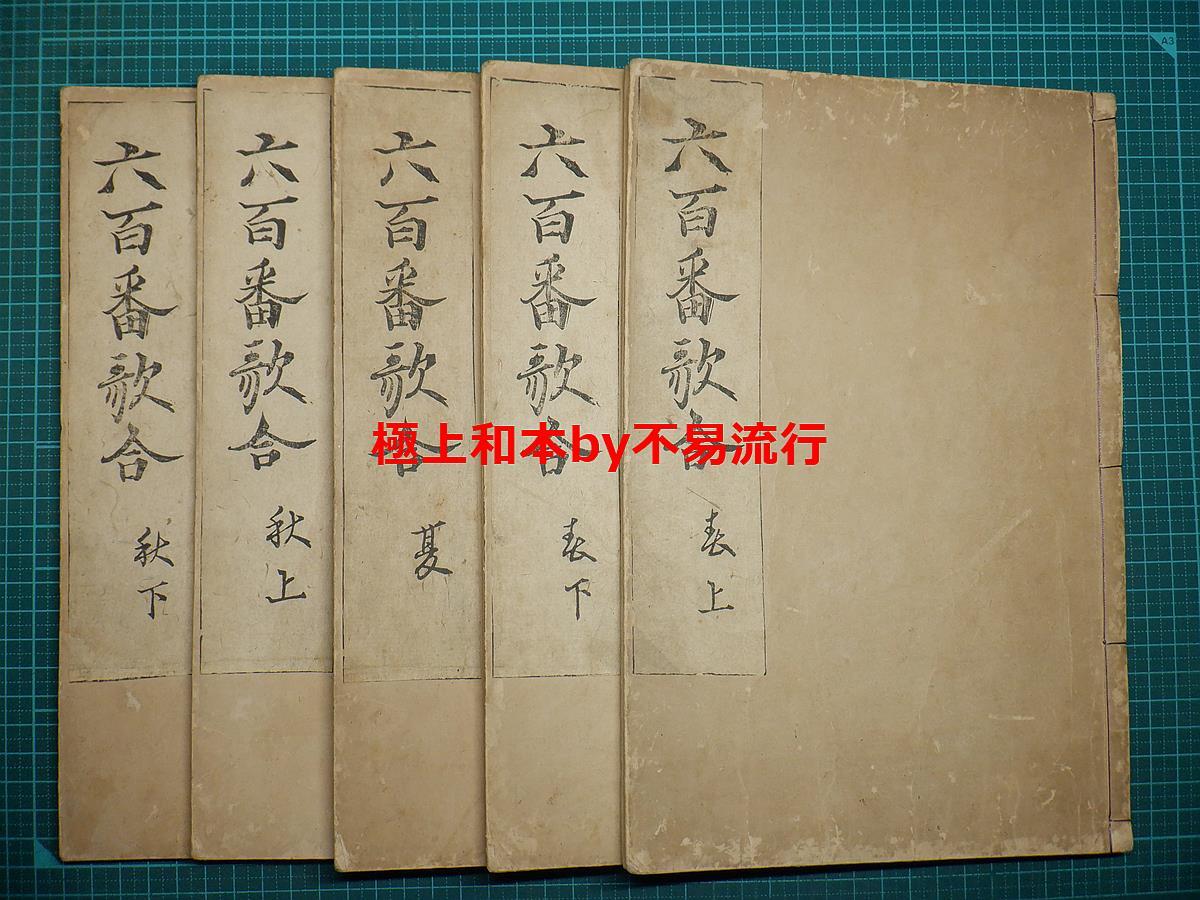 六百番歌合 春上
六百番歌合 春下
六百番歌合 夏
六百番歌合 秋上
六百番歌合 秋下
極上和本by不易流行
A3